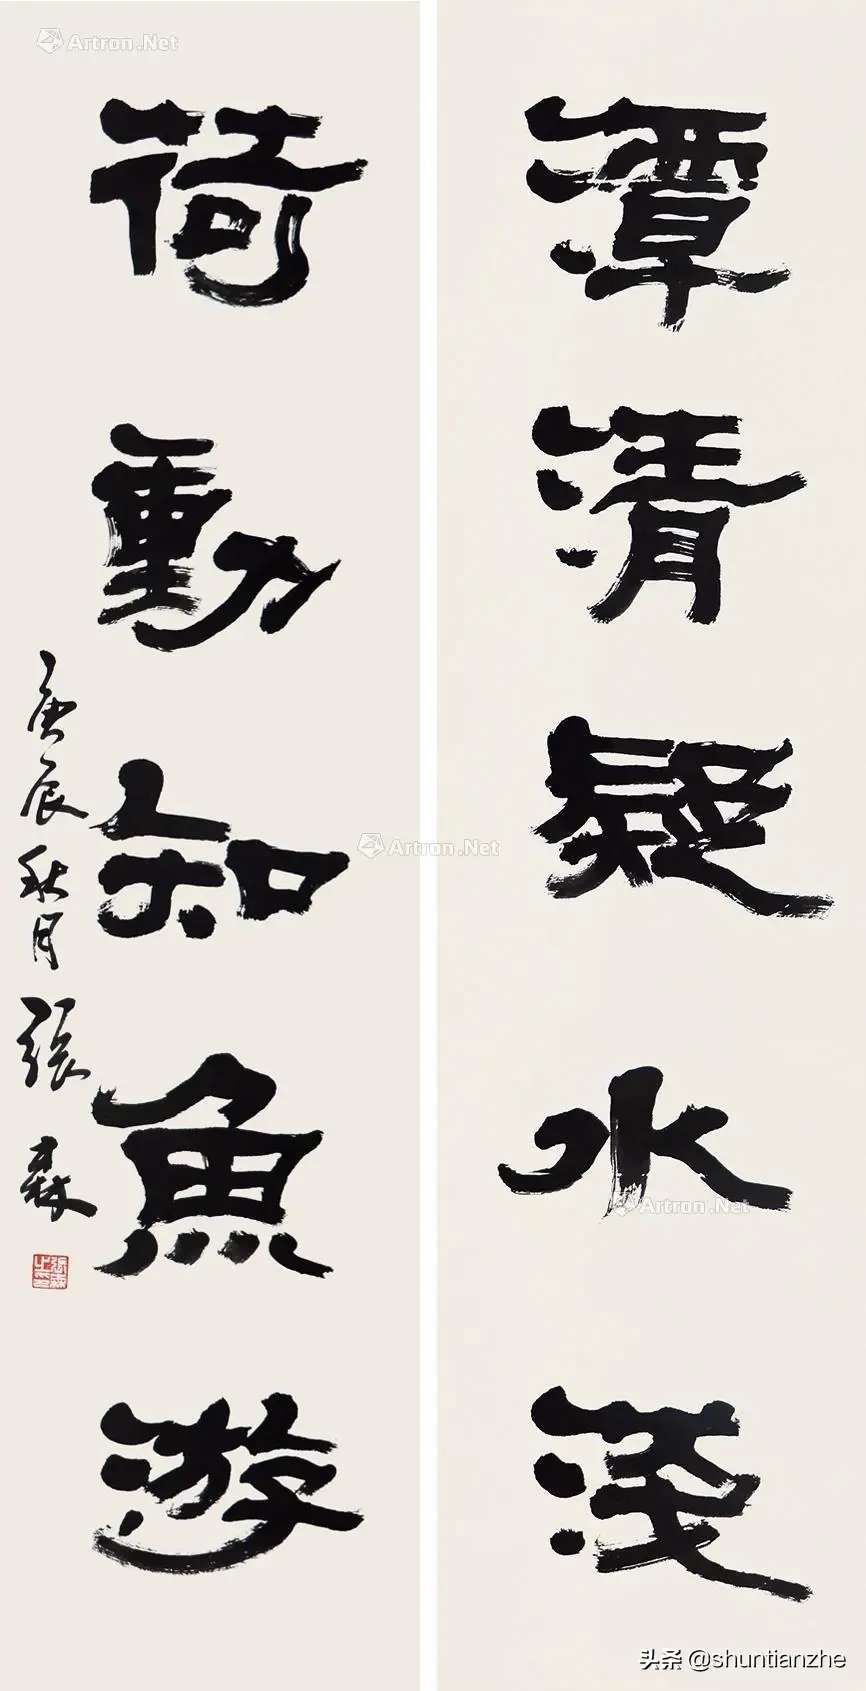 潭清疑水淺
荷動知魚游
庚辰秋月張森
張森之印
Artron.Net
Artron.Net
Artron.Net
头条 @shuntianzhe